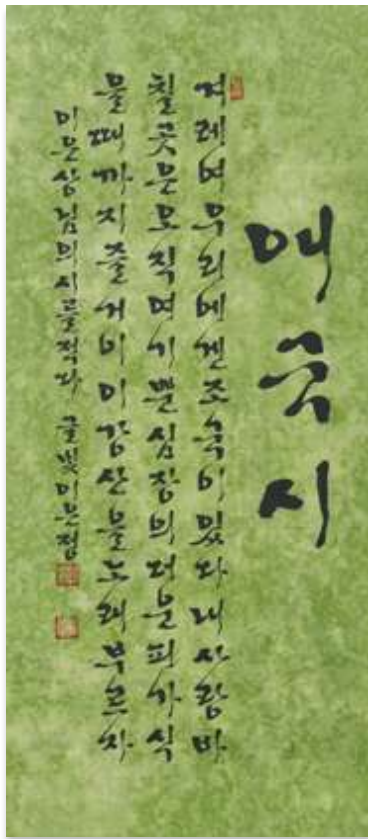 애국시
겨레여우리에겐조국이있다내사랑바
칠곳은오직여기뿐심장의더운피가식
을때까지즐거이이강산을노래부르자
이은상님의시를적다 글빛이은정